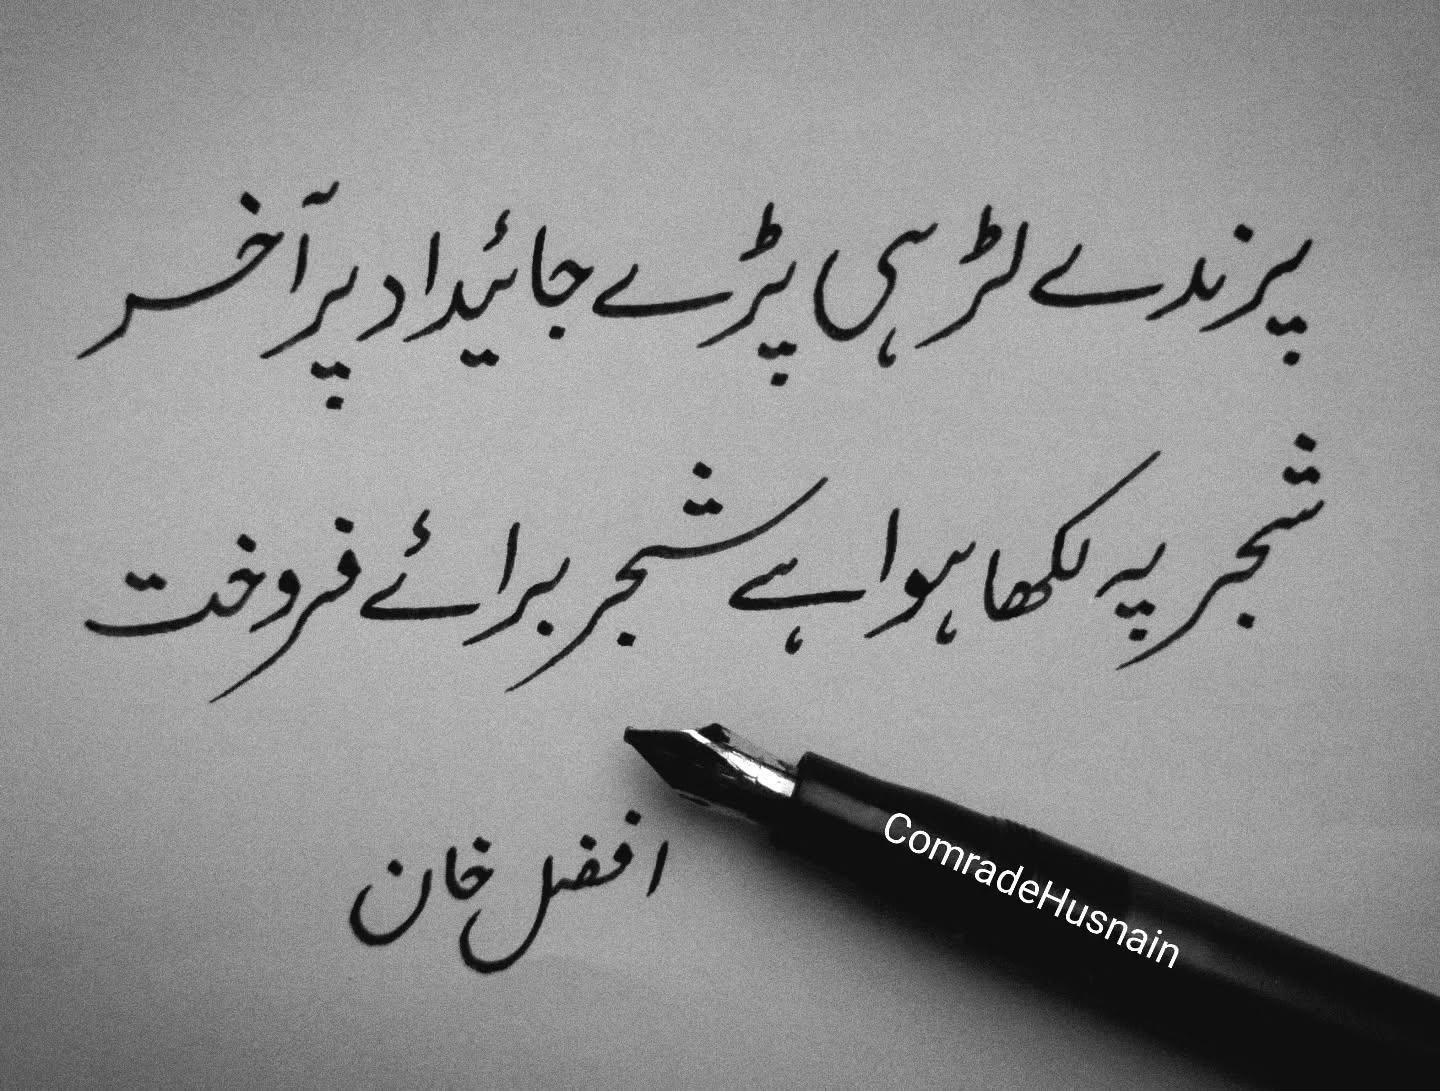 پرندے لڑ ہی پڑے جائیداد پر آخر
شجر پہ لکھا ہوا ہے شجر برائے فروخت
افضل خان
ComradeHusnain